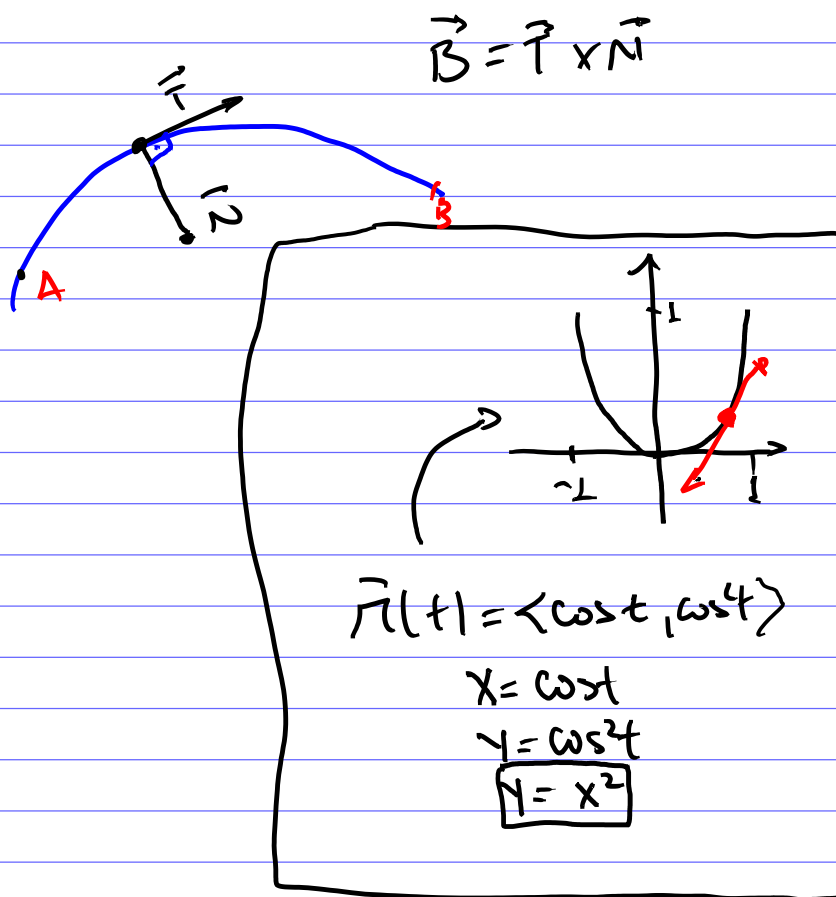 B⃗ = T⃗ × N⃗
T⃗
N⃗
B
A
1
-1
1
r⃗(t) = <cost, cos⁴t>
x = cost
y = cos²t
y = x²